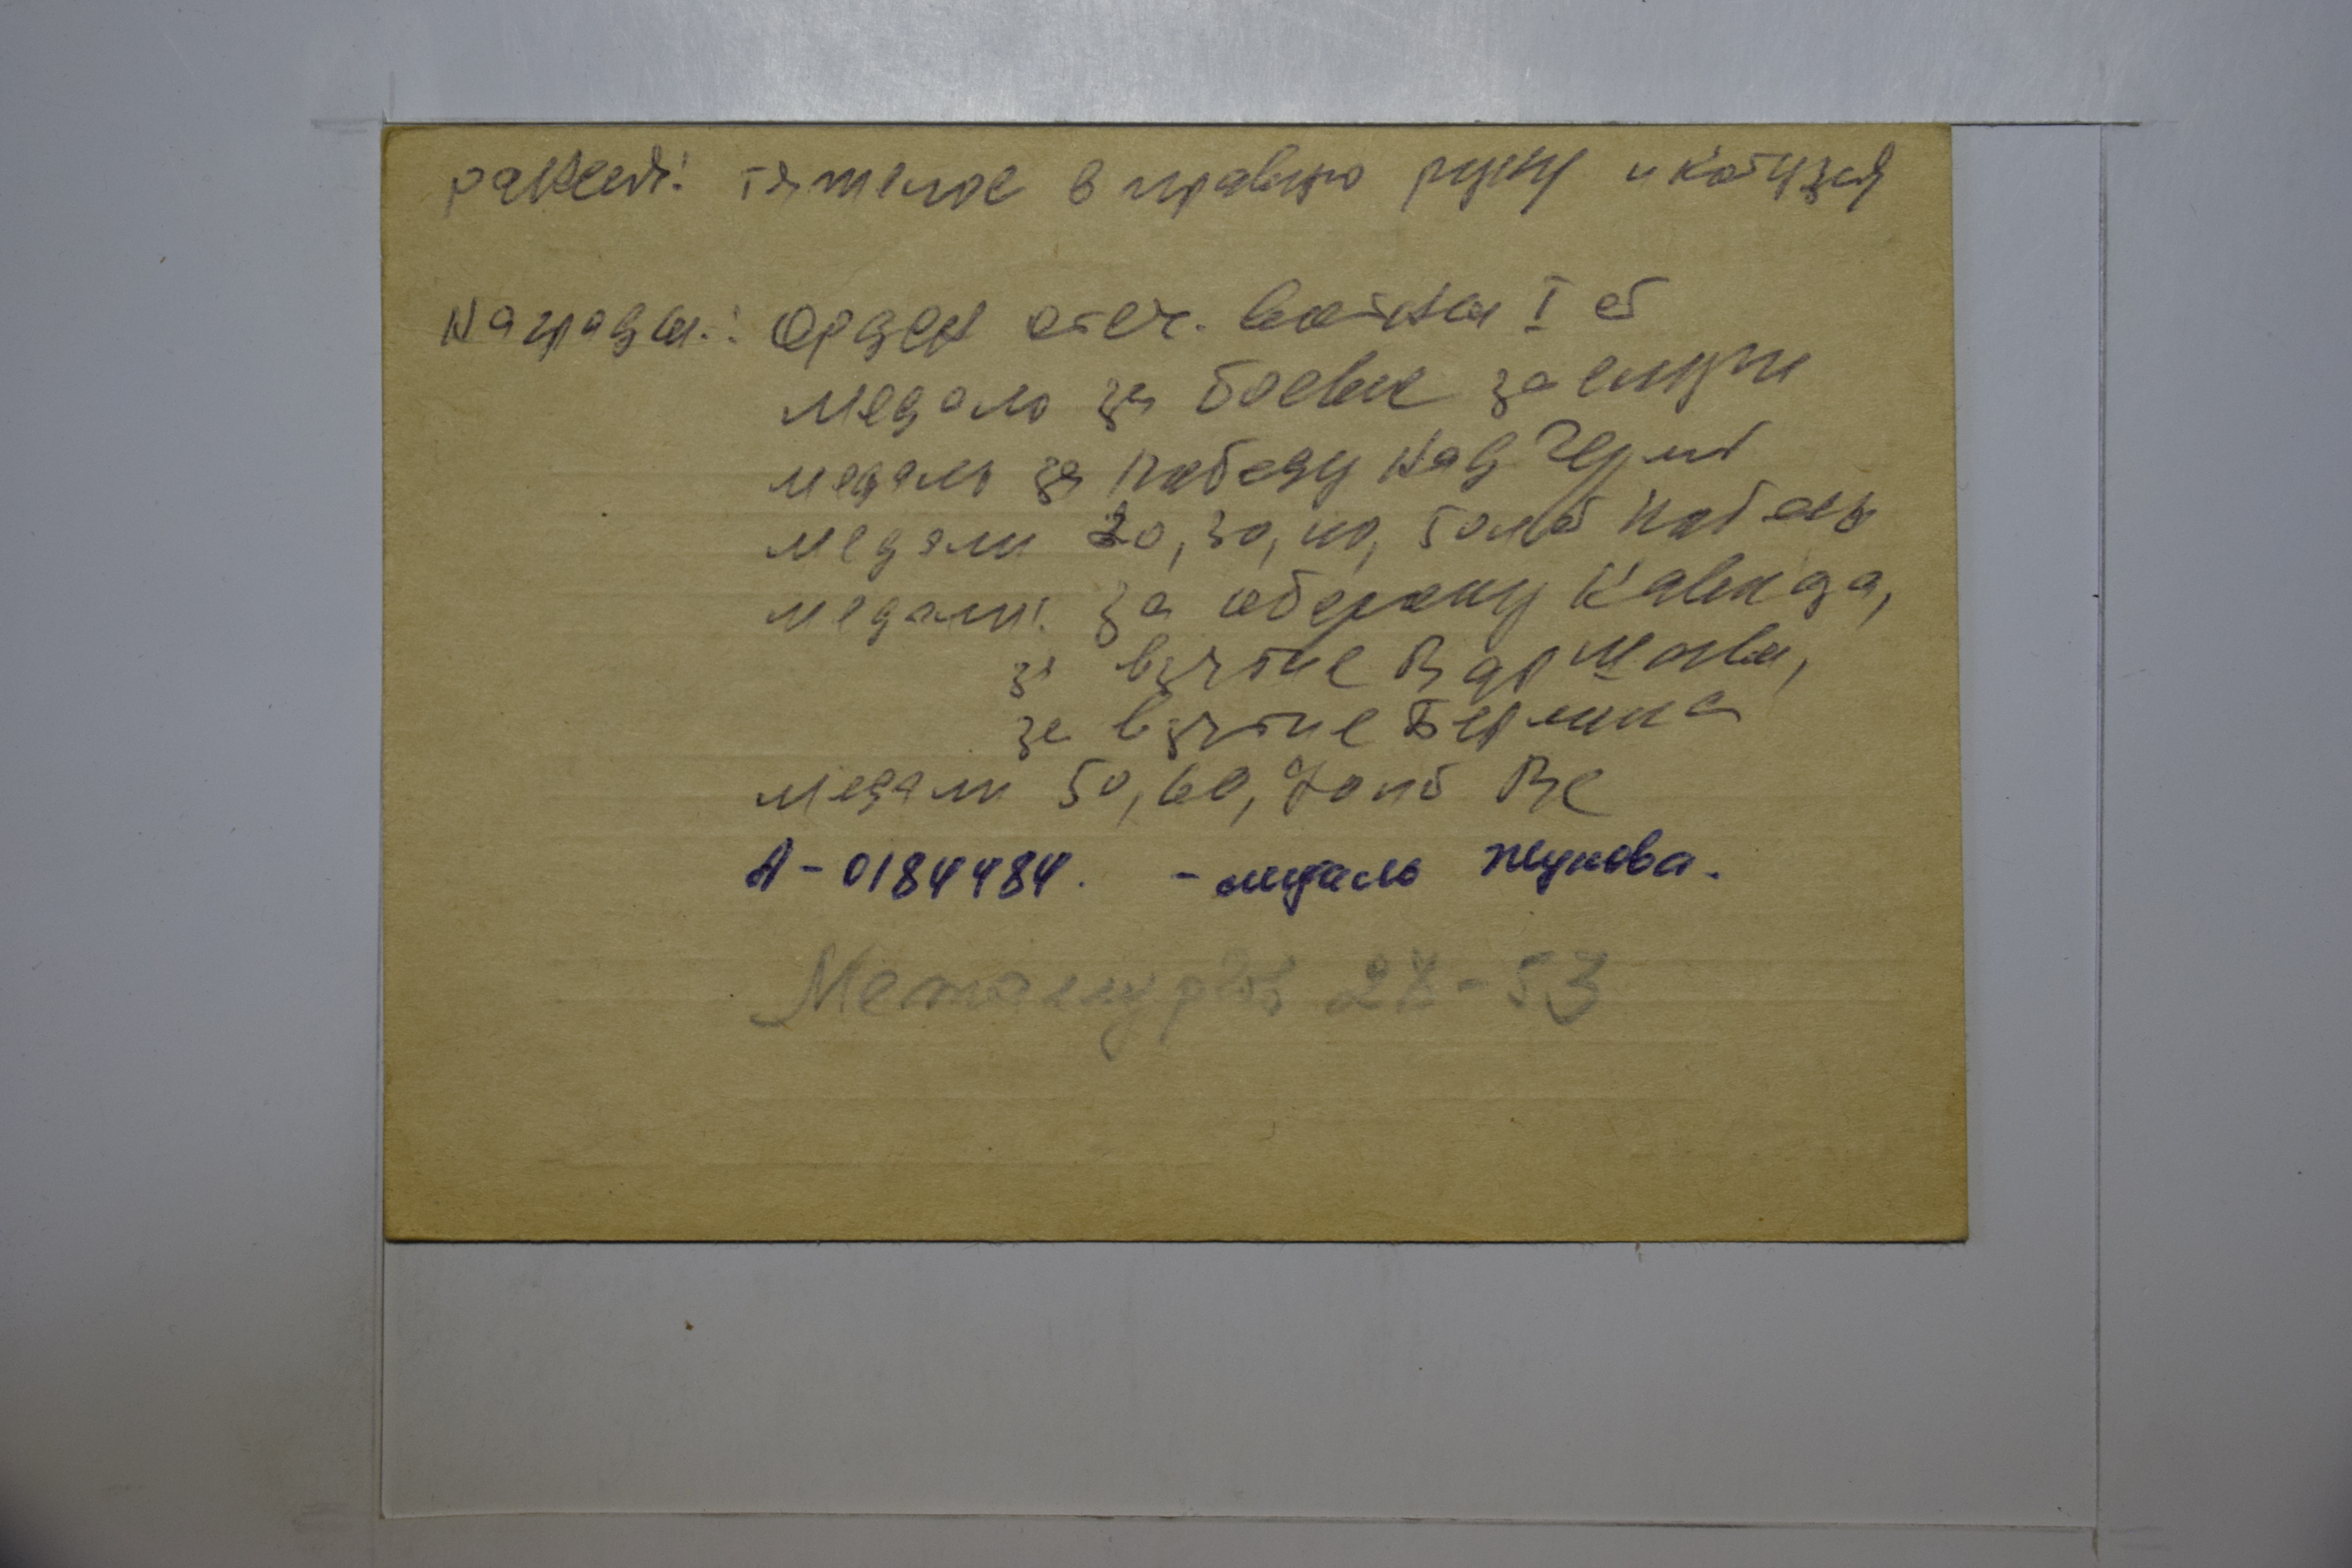 ранения: тяжелое в правую руку и контузия
Награды: Орден отеч. войны I ст
медаль за боевые заслуги
медаль за победу над Герм
медали 20, 30, 40, лет победы
медали: за оборону Кавказа,
за взятие Варшавы,
за взятие Берлина
медали 50, 60, 70 лет ВС
А-0184484. - медаль Жукова.
Металлургов 53